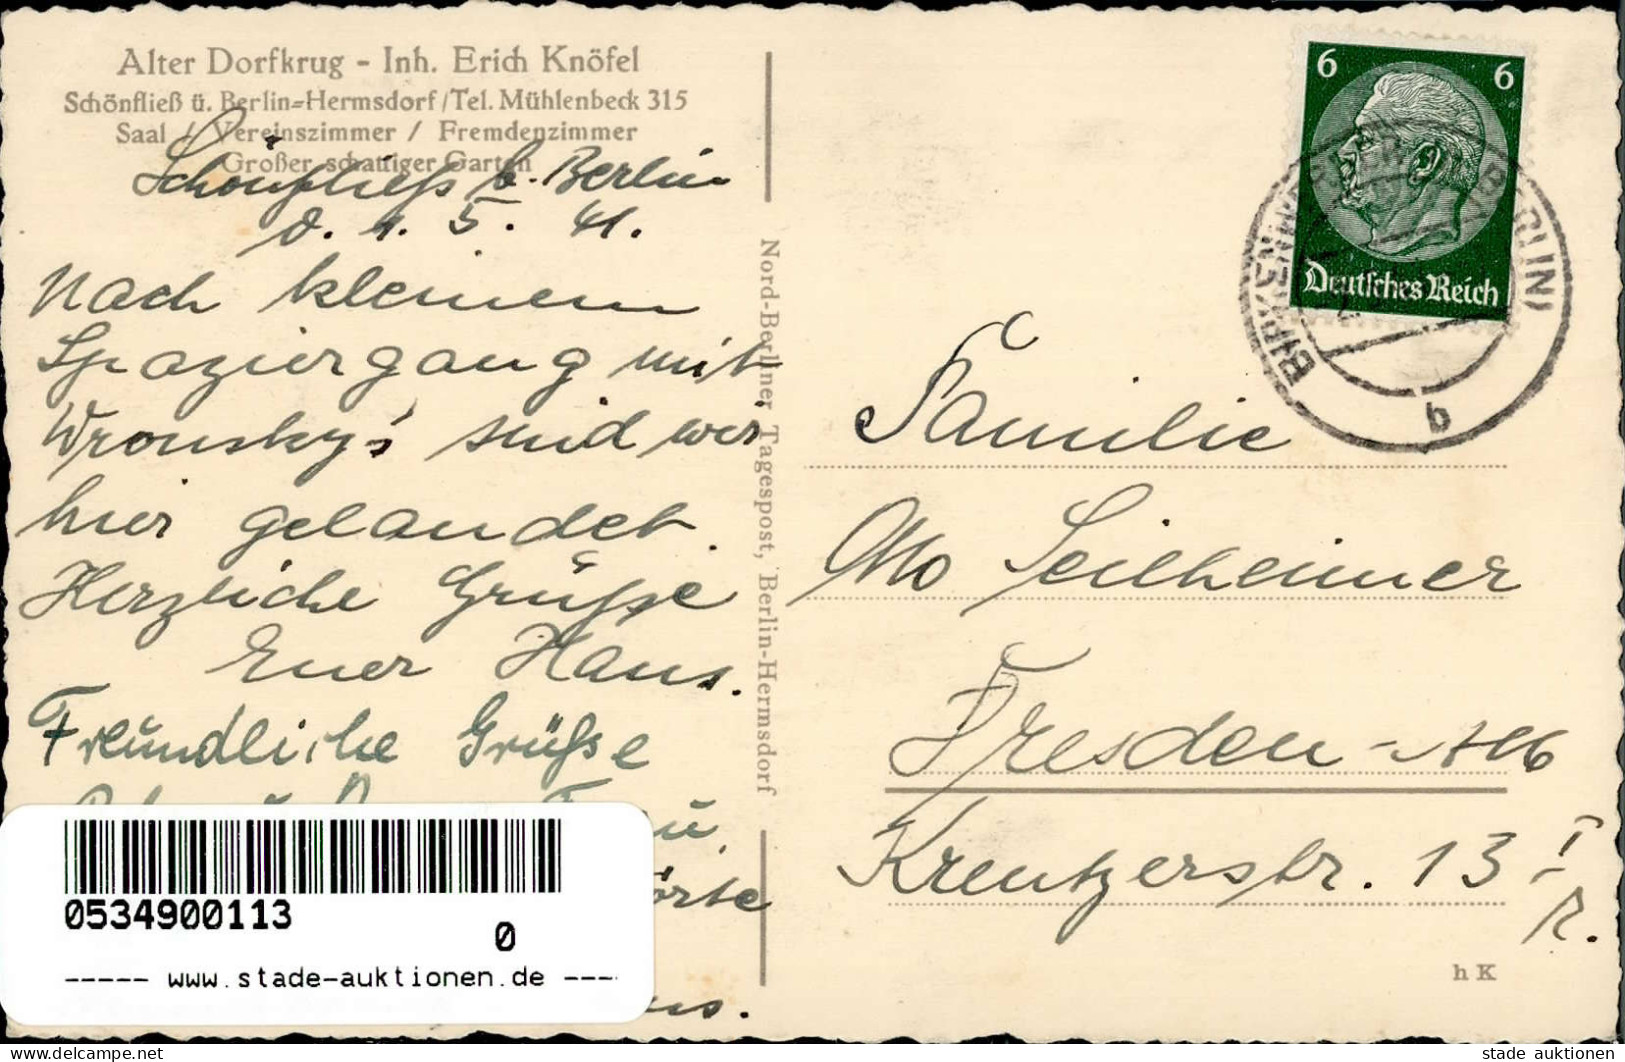 Alter Dorfkrug - Inh. Erich Knöfel
Schönfließ ü. Berlin-Hermsdorf / Tel. Mühlenbeck 315
Saal / Vereinszimmer / Fremdenzimmer
Großer schattiger Garten
Schönfliess b. Berlin
d. 1. 5. 41.
Nach kleinem
Spaziergang mit
Wronsky's sind wir
hier gelandet.
Herzliche Grüsse
Euer Hans.
Freundliche Grüsse
Nord-Berliner Tagespost, Berlin-Hermsdorf
6 6
Deutsches Reich
BIRKENWERDER (BERLIN)
b
Familie
Otto Seilheimer
Dresden-A 16
Kreutzerstr. 13 I
r.
h K
0534900113
0
----- www.stade-auktionen.de ----
stade auktionen
https://www.delcampe.net